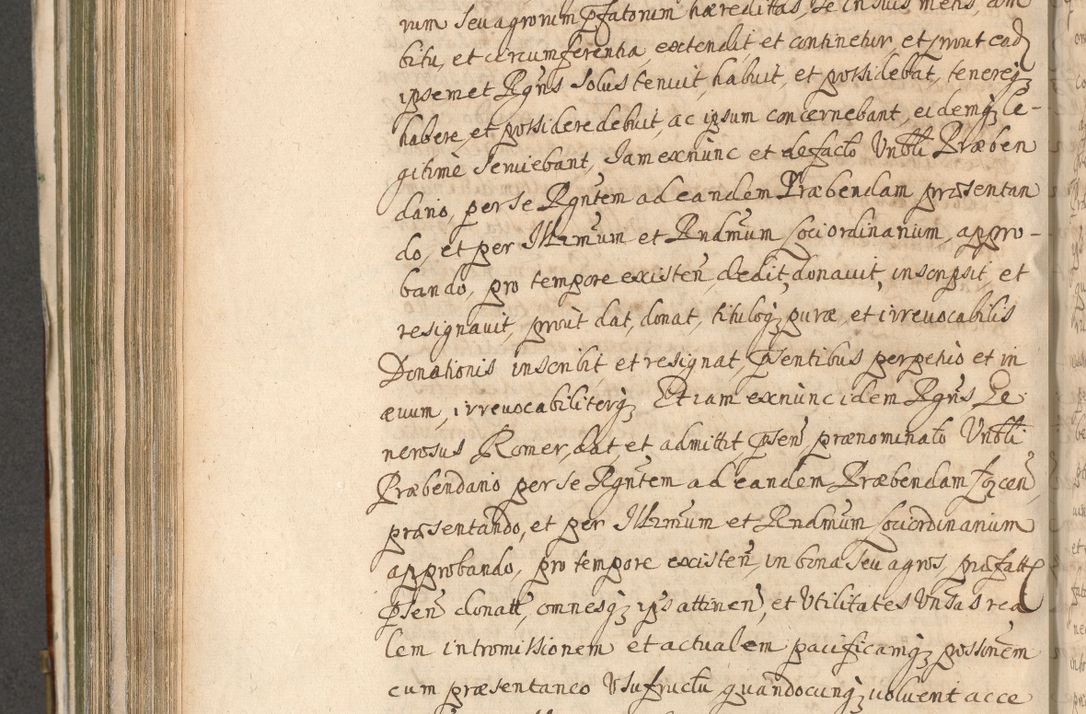 rum seu agrorum pfatorum hæreditas, se in suis metis, am
bitu, et circumferentia, extendit et continetur, et prout ead
ipsemet Rgns solus tenuit, habuit, et possidebat, tenereqз
habere, et possidere debuit, ac ipsum concernebant, eidemqз le-
gitimè serviebant, Jam exnunc et defacto Vnbli Præben
dario, per se Rgntem ad eandem Præbendam præsentan
do, et per Illrmum et Rndmum Loci ordinarium, appro-
bando, pro tempore existen, dedit, donavit, inscripsit, et
resignavit, prout dat, donat, tituloqз puræ, et irrevocabilis
Donationis inscribit et resignat psentibus perpetuò et in
ævum, irrevocabiliterqз Etiam exnunc idem Rgns Ge
nerosus Romer, dat et admittit psen prænominato Vnbli
Præbendario per se Rgntem ad eandem Præbendam
præsentando, et per Illrmum et Rndmum Loci ordinarium
approbando, pro tempore existen, in bona seu agros, præfatt
psen donatt, omnesqз ips attinen, et Vtilitates Vnsas rea
lem intromissionem et actualem pacificamqз possinem
cum præsentaneo Vsufructu quandocunqз voluerit acce